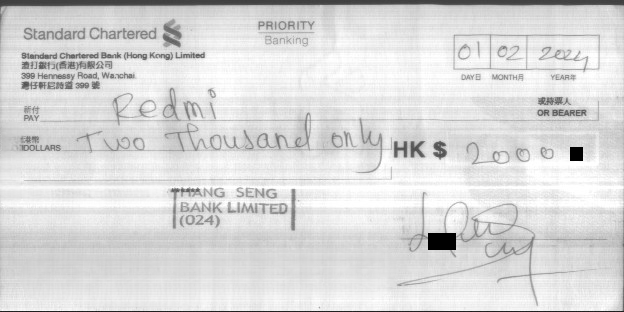 Standard Chartered
PRIORITY
Banking
Standard Chartered Bank (Hong Kong) Limited
渣打銀行(香港)有限公司
399 Hennessy Road, Wanchai
灣仔軒尼詩道 399 號
01 02 2024
DAY日 MONTH月 YEAR年
祈付
PAY Redmi
或持票人
OR BEARER
港幣
DOLLARS Two Thousand only
HK $ 2000
HANG SENG
BANK LIMITED
(024)